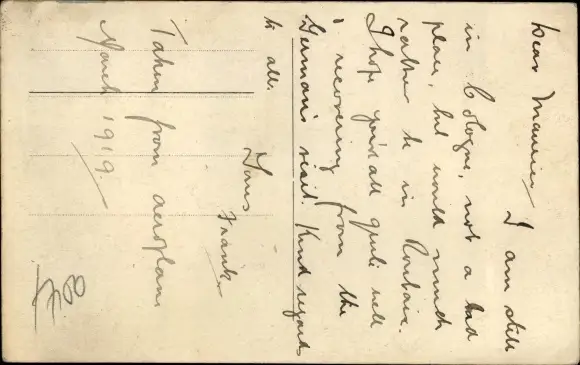 Dear Maurice, I am still
in Cologne, not a bad
place, but would much
rather be in Roubaix.
I hope you're all quite well
& recovering from the
Germans visit. Kind regards
to all.
Yours
Frank
Taken from aeroplane
March 1919.